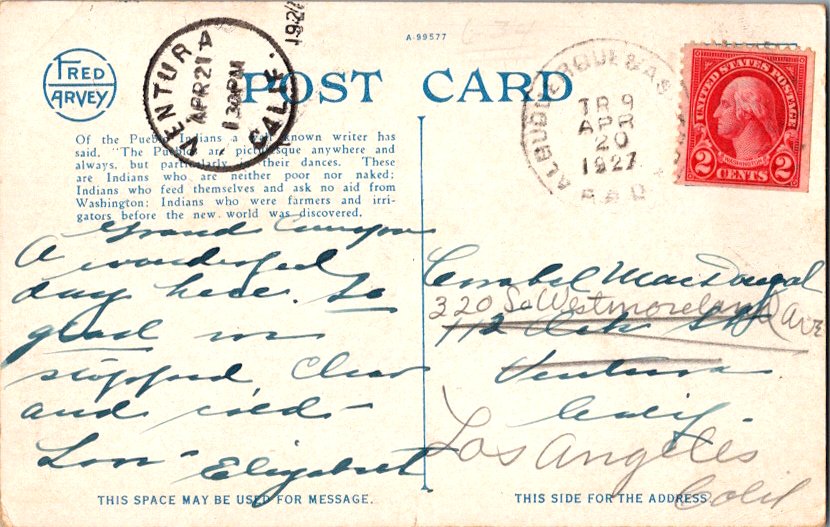 A-99577
FRED
HARVEY
POST CARD
VENTURA
APR 21
1 30 PM
CALIF.
192
ALBUQUERQUE & 
TR 9
APR
20
1927
R.P.O.
UNITED STATES POSTAGE
WASHINGTON
2 CENTS 2
Of the Pueblo Indians a well known writer has
said, "The Pueblos are picturesque anywhere and
always, but particularly in their dances. These
are Indians who are neither poor nor naked;
Indians who feed themselves and ask no aid from
Washington; Indians who were farmers and irri-
gators before the new world was discovered.
Grand Canyon
A wonderful
day here. So
glad we
stopped. Clear
and cold-
Love Elizabeth
MacDougal
320 So Westmoreland Ave
112 Oak St
Ventura
Calif.
Los Angeles
Calif
THIS SPACE MAY BE USED FOR MESSAGE.
THIS SIDE FOR THE ADDRESS